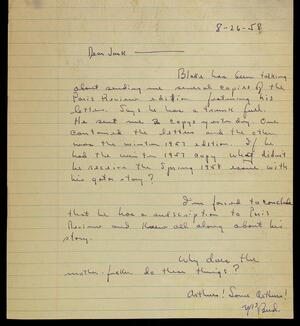 8-26-58
Dear Jack
Blake has been talking
about sending me several copies of the
Paris Review edition featuring his
letters. Says he has a trunk full.
He sent me 2 copys yesterday. One
contained the letters and the other
was the winter 1957 edition. If he
had the winter 1957 copy what didn't
he receive the Spring 1958 issue with
his gator story?
I'm forced to conclude
that he has a subscription to Paris
Review and knew all along about his
story.
Why does the
mother-fucker do these things?
Authors! Some Authors!